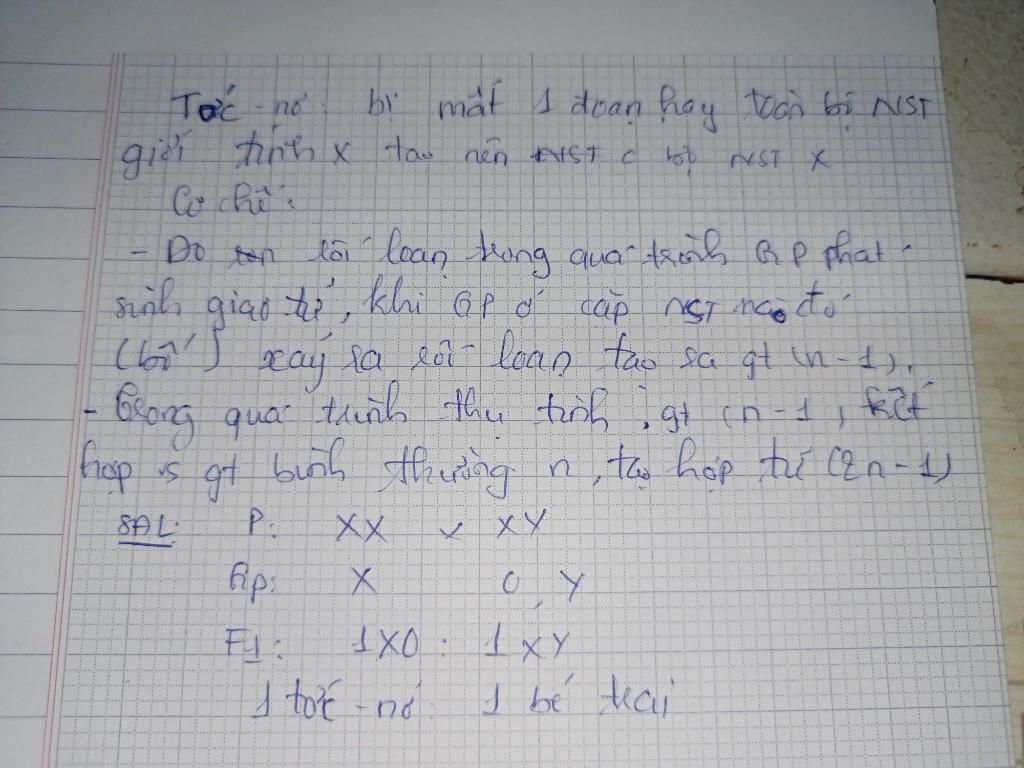 Tớc-nơ: bị mất 1 đoạn hay toàn bộ NST
giới tính X tạo nên NST c bộ NST X
Cơ chế:
- Do rối loạn trong quá trình GP phát
sinh giao tử, khi GP ở cặp NST nào đó
(bố) xảy sa rối loạn tạo sa gt (n-1).
- Trong quá trình thụ tinh, gt (n-1, kết
hợp vs gt bình thường n, tạo hợp tử (2n-1)
SĐL: P: XX x XY
Gp: X O, Y
F1: 1XO : 1XY
1 tớc-nơ: 1 bé trai